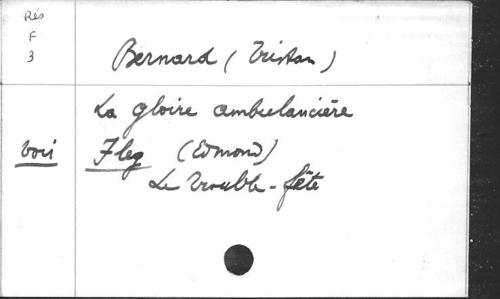 Rés
F
3
Bernard (Tristan)
La gloire ambulancière
Voir Fleg (Edmond)
Le Trouble-fête